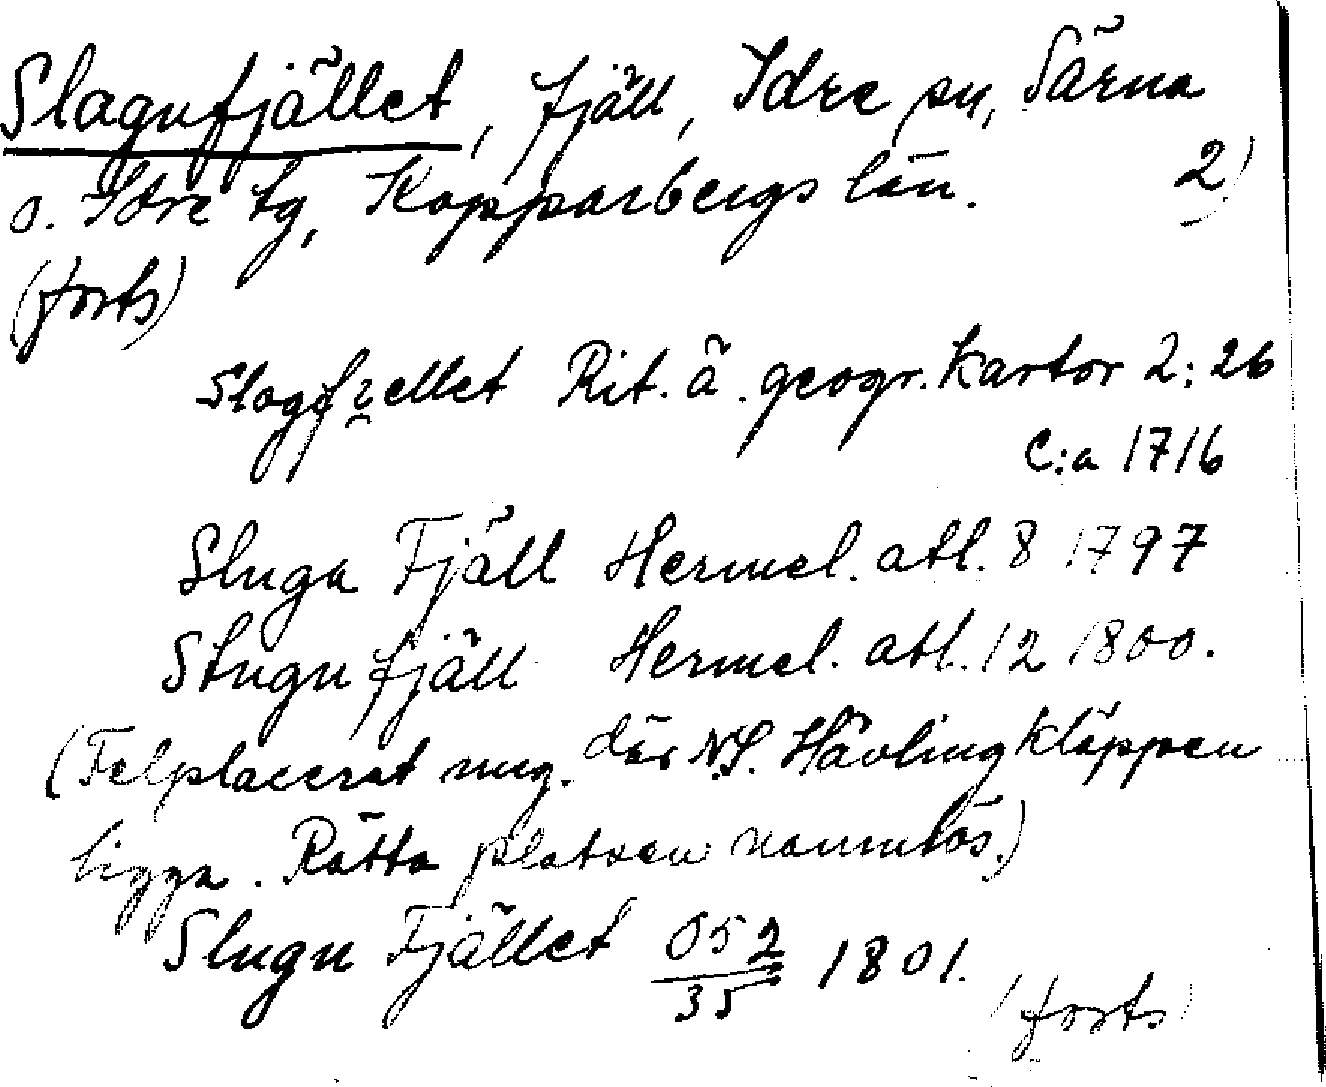 Slagufjället, fjäll, Idre sn, Särna
o. Idre tg, Kopparbergs län. 2)
(forts)
Slagfiellet Rit. ä. geogr. kartor 2:26
C:a 1716
Sluga Fjäll Hermel. atl. 8 1797
Stugu fjäll Hermel. atl. 12 1800.
(Felplacerat ung. där N.S. Hävlingkläppen
ligga. Rätta platsen namnlös.)
Slugu Fjället 052/35 1801.
(forts)